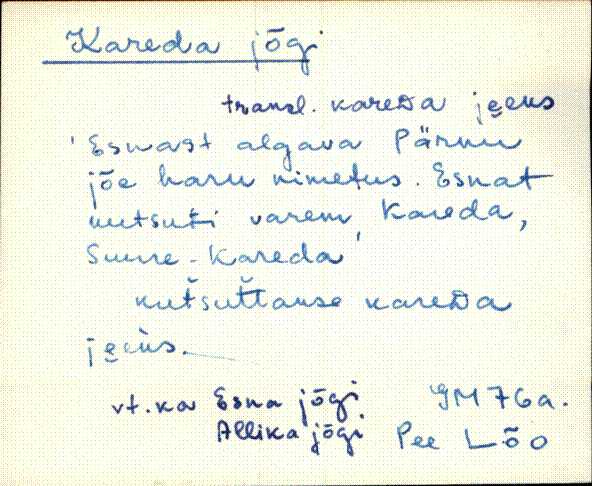 Kareda jõgi
transl. kareDa je̬e̬us
'Esnast algava Pärnu
jõe haru nimetus. Esnat
kutsuti varem Kareda,
Suure-Kareda'
kutšuťtause kareDa
je̬e̬us.
vt. ka Esna jõgi
Allika jõgi
GM 76a.
Pee Lõo